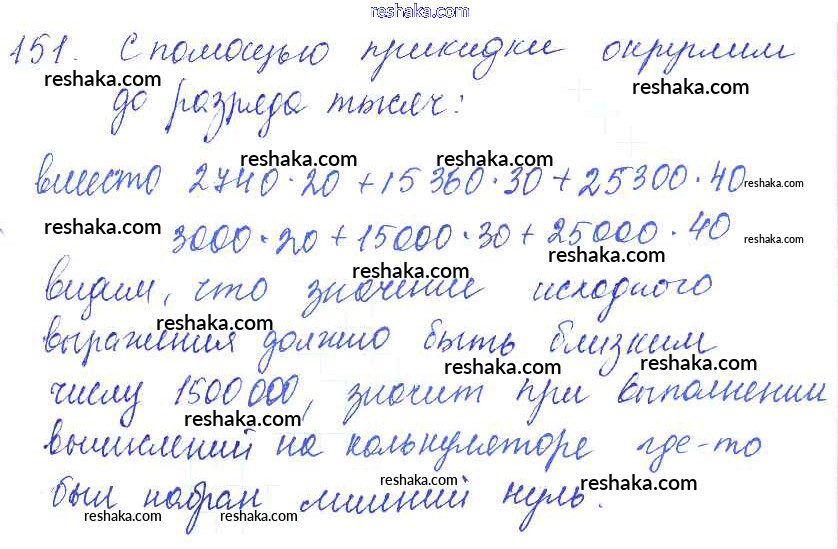 reshaka.com
151. С помощью прикидки округлим
reshaka.com reshaka.com
до разряда тысяч:
reshaka.com reshaka.com
вместо 2740·20 + 15360·30 + 25300·40
reshaka.com
reshaka.com
3000·20 + 15000·30 + 25000·40
reshaka.com
reshaka.com reshaka.com
видим, что значение исходного
reshaka.com
выражения должно быть близким
reshaka.com reshaka.com
числу 1500 000, значит при выполнении
reshaka.com reshaka.com
вычислений на калькуляторе где-то
reshaka.com reshaka.com
был набран лишний нуль.
reshaka.com reshaka.com